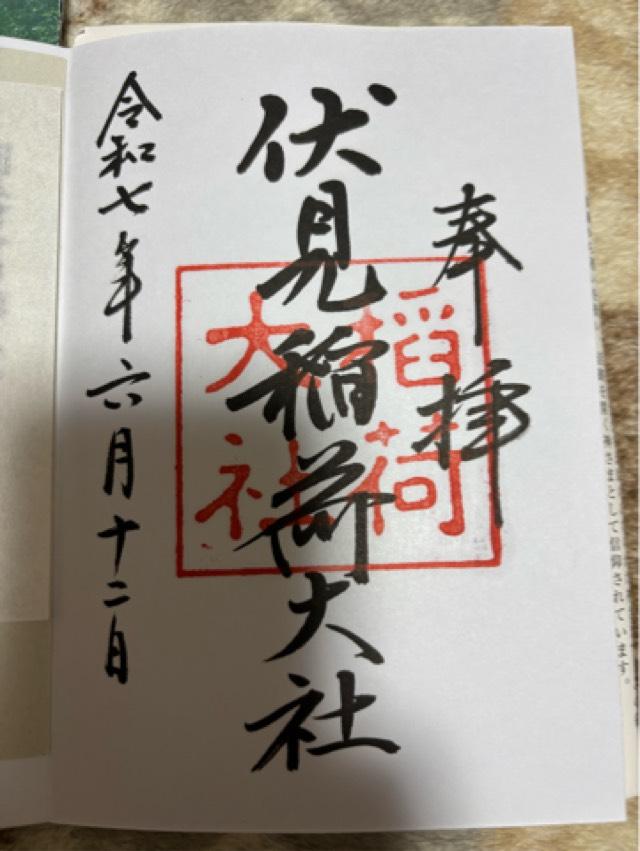 奉拝
伏見稲荷大社
稲荷
大社
令和七年六月十二日
を開く神さまとして信仰されています。